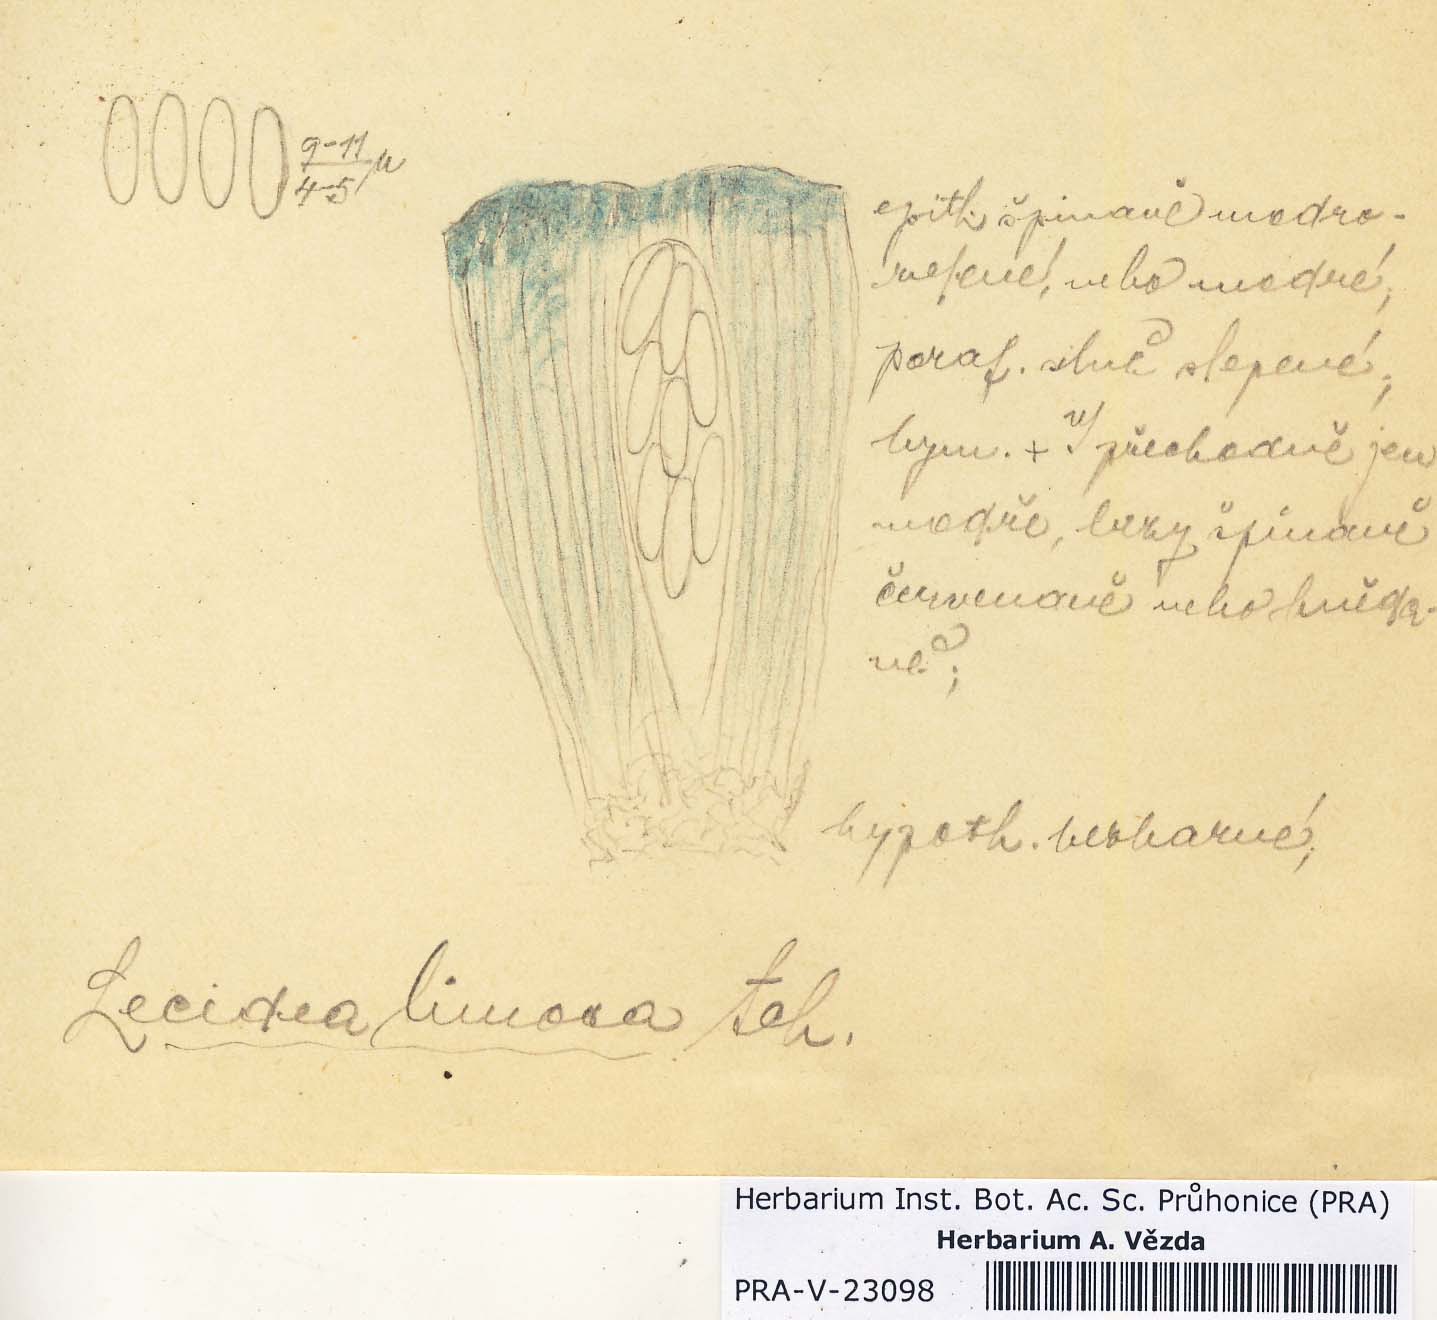 9-11
4-5 µ
epith. špinavě modro-
zelené, nebo modré,
paraf. silně slepené,
hym. + J přechodně jen
modře, brzy špinavě
červenavě nebo hněda-
vě;
hypoth. bezbarvé,
Lecidea limosa Ach.
Herbarium Inst. Bot. Ac. Sc. Průhonice (PRA)
Herbarium A. Vězda
PRA-V-23098